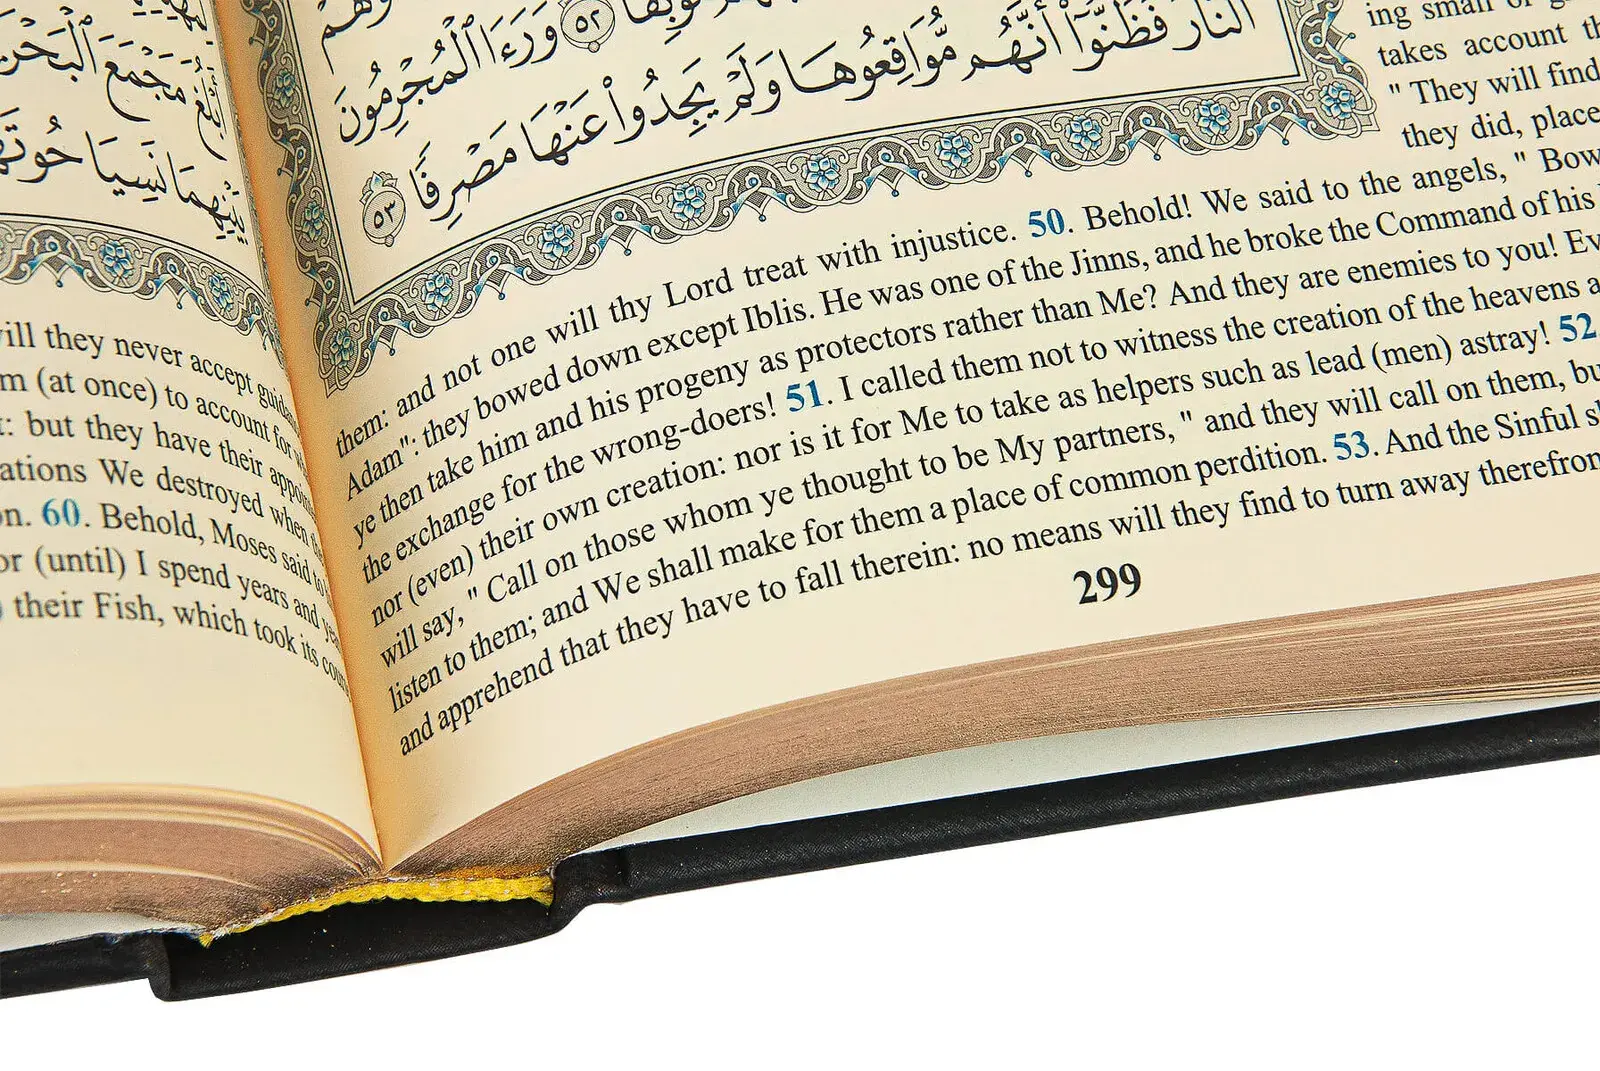 ٱلنَّارَ فَظَنُّوٓا۟ أَنَّهُم مُّوَاقِعُوهَا وَلَمْ يَجِدُوا۟ عَنْهَا مَصْرِفًا ٥٣
وَرَءَا ٱلْمُجْرِمُونَ
٥٢
ing small or
takes account
" They will find
they did, place
them: and not one will thy Lord treat with injustice. 50. Behold! We said to the angels, " Bow
Adam": they bowed down except Iblis. He was one of the Jinns, and he broke the Command of his
ye then take him and his progeny as protectors rather than Me? And they are enemies to you! Ev
the exchange for the wrong-doers! 51. I called them not to witness the creation of the heavens a
nor (even) their own creation: nor is it for Me to take as helpers such as lead (men) astray! 52.
will say, " Call on those whom ye thought to be My partners, " and they will call on them, bu
listen to them; and We shall make for them a place of common perdition. 53. And the Sinful s
and apprehend that they have to fall therein: no means will they find to turn away therefron
299
مَجْمَعَ ٱلْبَحْرَ
بَيْنِهِمَا نَسِيَا حُوتَهُ
ill they never accept guid
m (at once) to account for
t: but they have their appoin
ations We destroyed when
on. 60. Behold, Moses said to
or (until) I spend years and ye
) their Fish, which took its cour